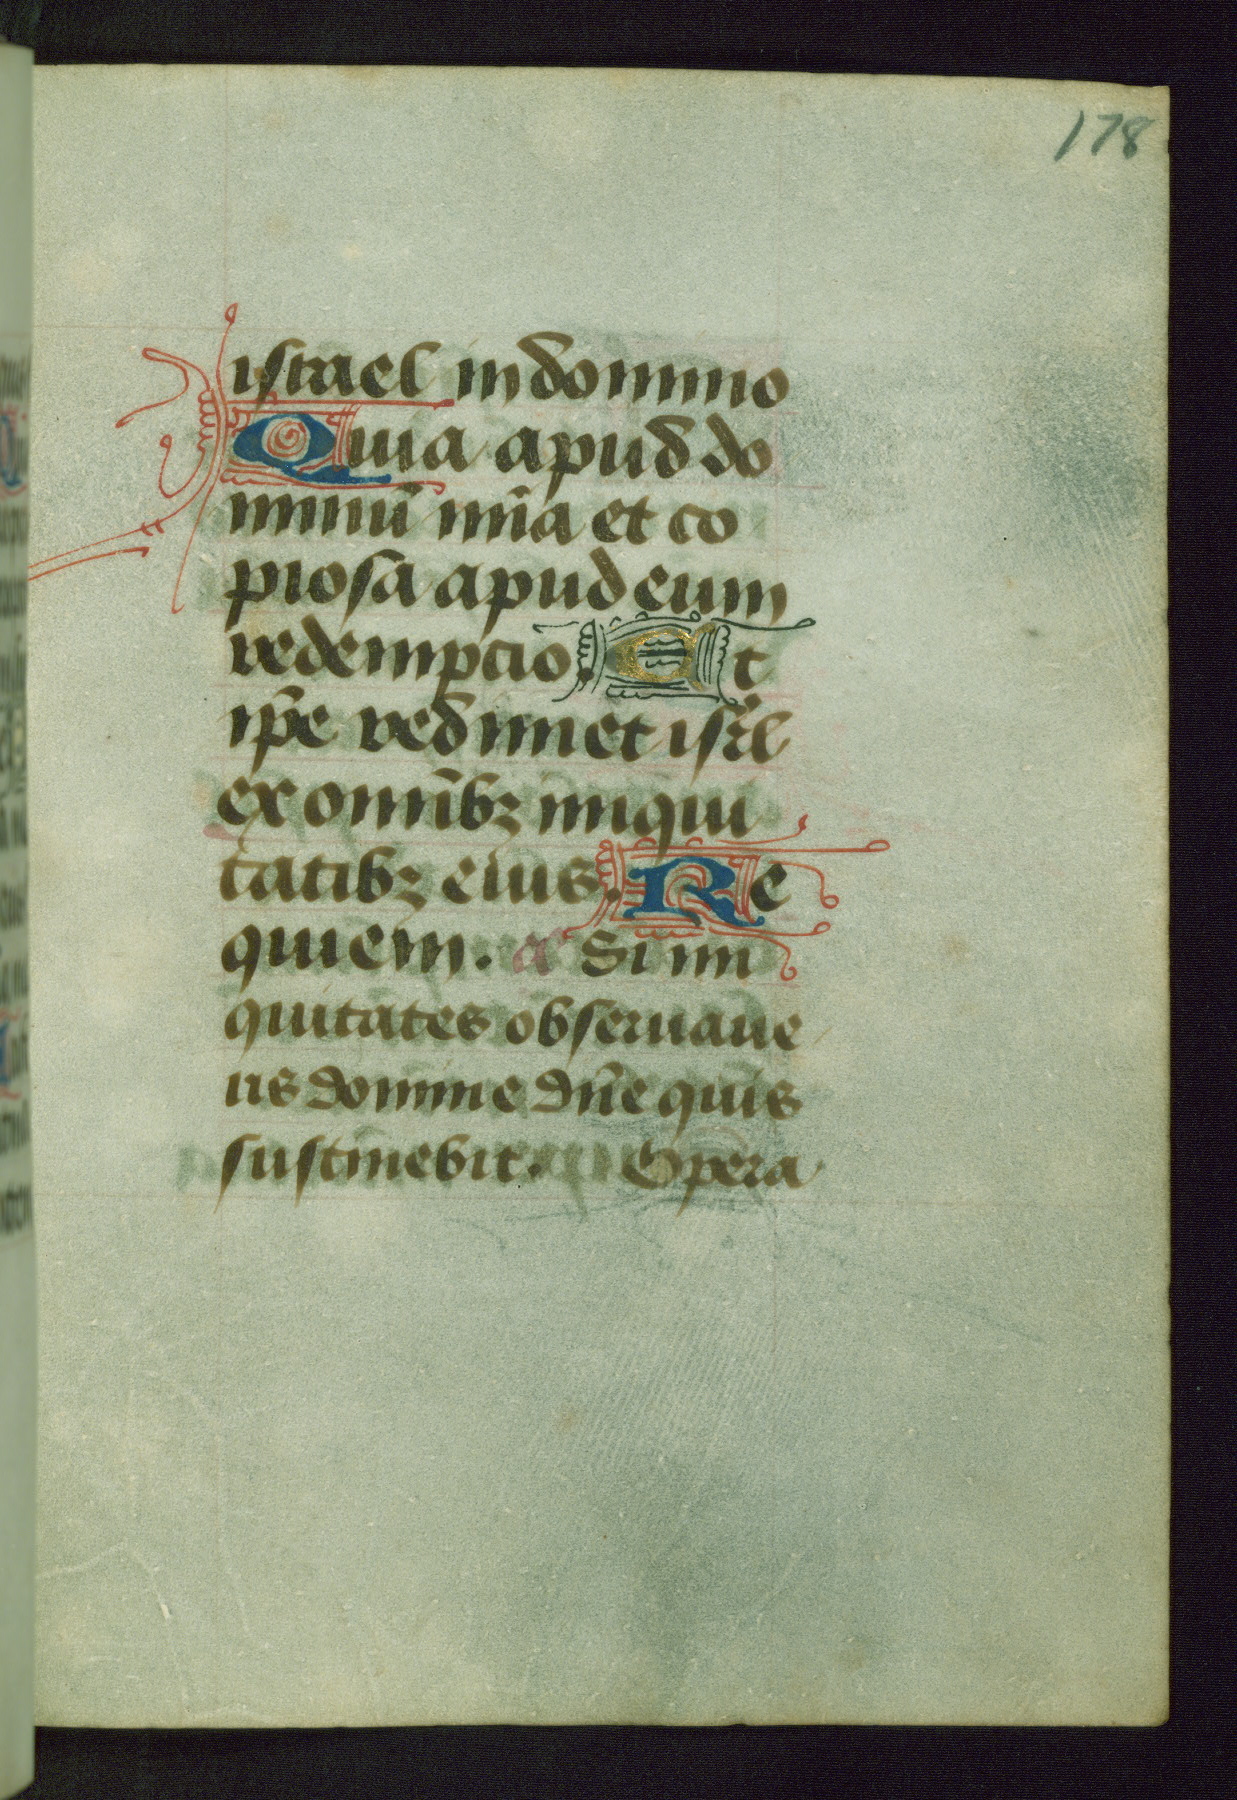 178
istael in domino
Quia apud do
minū mīa et co
piosa apud eum
redempcio Et
ip̄e redimet isr̄l
ex omībꝫ iniqui
tatibꝫ eius. Re
quiem. a᷒ Si ini
quitates obseruaue
ris domine dn̄e quis
sustinebit. Opera